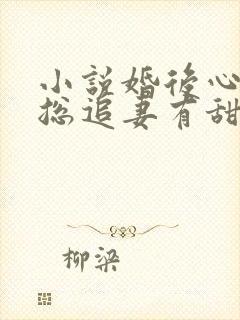 小説婚後心
総追妻有甜
柳梁